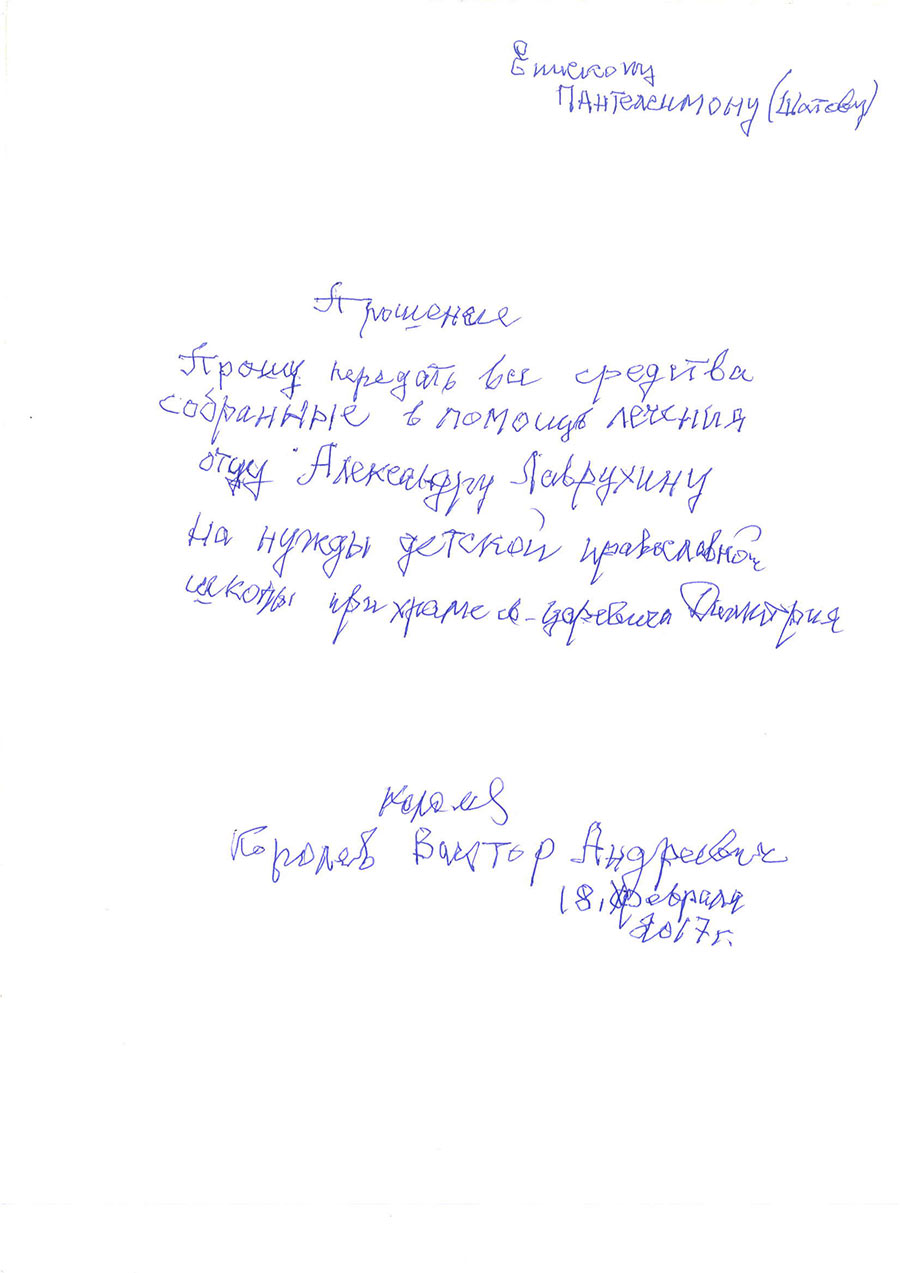 Епископу
Пантелеимону (Шатову)
Прошение
Прошу передать все средства
собранные в помощь лечения
отцу Александру Лаврухину
на нужды детской православной
школы при храме св. царевича Димитрия
Королев
Королев Виктор Андреевич
18, февраля
2017 г.